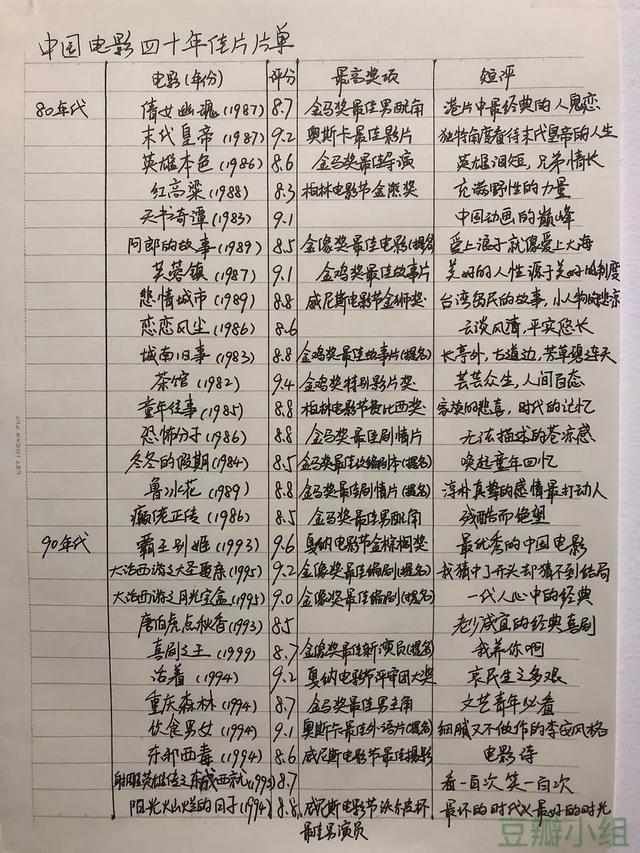 中国电影四十年佳片片单
电影(年份) 评分 最高奖项 短评
80年代 倩女幽魂(1987) 8.7 金马奖最佳男配角 港片中最经典的人鬼恋
末代皇帝(1987) 9.2 奥斯卡最佳影片 独特角度看待末代皇帝的人生
英雄本色(1986) 8.6 金马奖最佳导演 英雄泪短,兄弟情长
红高粱(1988) 8.3 柏林电影节金熊奖 充满野性的力量
天书奇谭(1983) 9.1 中国动画的巅峰
阿郎的故事(1989) 8.5 金像奖最佳电影(提名) 爱上浪子就像爱上大海
芙蓉镇(1987) 9.1 金鸡奖最佳故事片 美好的人性源于美好的制度
悲情城市(1989) 8.8 威尼斯电影节金狮奖 台湾居民的故事,小人物的悲凉
恋恋风尘(1986) 8.6 云淡风清,平实悠长
城南旧事(1983) 8.8 金鸡奖最佳故事片(提名) 长亭外,古道边,芳草碧连天
茶馆(1982) 9.4 金鸡奖特别影片奖 芸芸众生,人间百态
童年往事(1985) 8.8 柏林电影节费比西奖 家族的悲喜,时代的记忆
恐怖分子(1986) 8.8 金马奖最佳剧情片 无法描述的苍凉感
冬冬的假期(1984) 8.5 金马奖最佳改编剧本(提名) 唤起童年回忆
鲁冰花(1989) 8.8 金马奖最佳剧情片(提名) 淳朴真挚的感情最打动人
癫佬正传(1986) 8.5 金马奖最佳男配角 残酷而绝望
90年代 霸王别姬(1993) 9.6 戛纳电影节金棕榈奖 最优秀的中国电影
大话西游之大圣娶亲(1995) 9.2 金像奖最佳编剧(提名) 我猜中了开头却猜不到结局
大话西游之月光宝盒(1995) 9.0 金像奖最佳编剧(提名) 一代人心中的经典
唐伯虎点秋香(1993) 8.5 老少咸宜的经典喜剧
喜剧之王(1999) 8.7 金像奖最佳新演员(提名) 我养你啊
活着(1994) 9.2 戛纳电影节评审团大奖 哀民生之多艰
重庆森林(1994) 8.7 金马奖最佳男主角 文艺青年必看
饮食男女(1994) 9.1 奥斯卡最佳外语片(提名) 细腻又不做作的李安风格
东邪西毒(1994) 8.6 威尼斯电影节最佳摄影 电影诗
射雕英雄传之东成西就(1993) 8.7 看一百次笑一百次
阳光灿烂的日子(1994) 8.8 威尼斯电影节沃尔皮杯 最坏的时代又最好的时光
最佳男演员
豆瓣小组